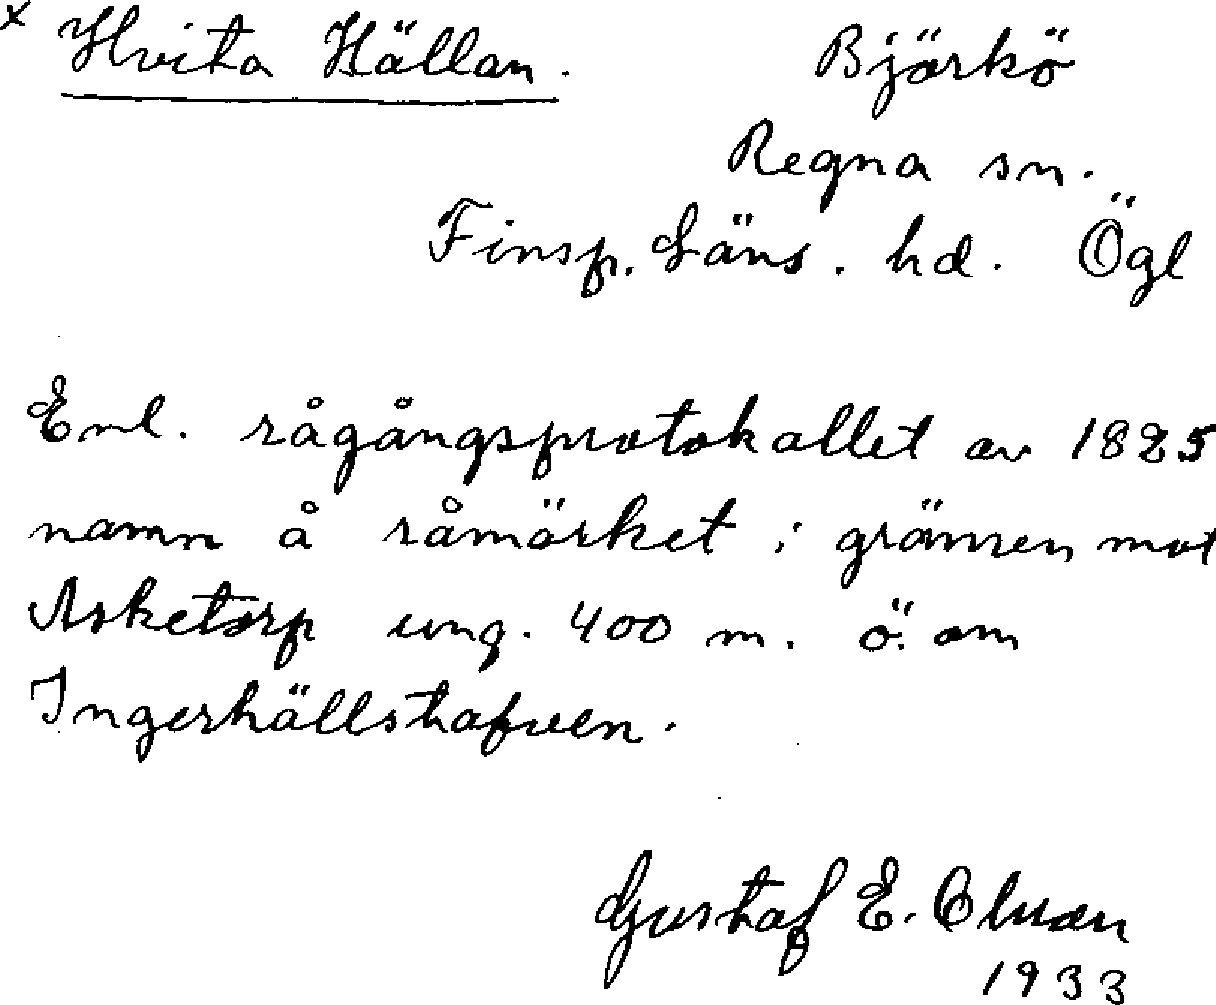 x Hvita Hällan. Björkö
Regna sn.
Finsp. Läns. hd. Ögl
Enl. rågångsprotokollet av 1825
namn å råmärket i gränsen mot
Asketorp ung. 400 m. ö. om
Ingershällstafven.
Gustaf E.
1933